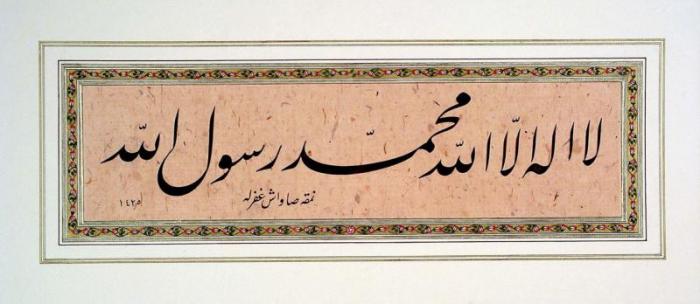 لا اله الا الله محمد رسول الله
نمقه صاواش غفرله